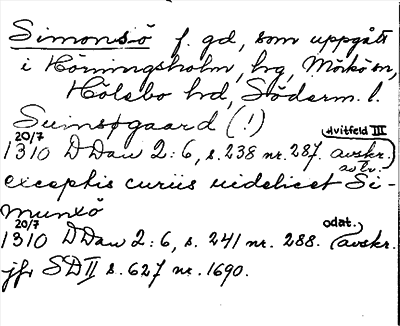 Simonsö f. gd, som uppgått
i Hörningsholm, hg, Mörkö sn,
Hölebo hd, Söderm. l.
Suinsøgaard (!)
Hvitfeld III
20/7
1310 DDan 2:6, s. 238 nr. 287. avskr.
exceptis curiis videlicet Si-
munxö
20/7 odat.
1310 DDan 2:6, s. 241 nr. 288. avskr.
jfr SD II s. 627 nr. 1690.